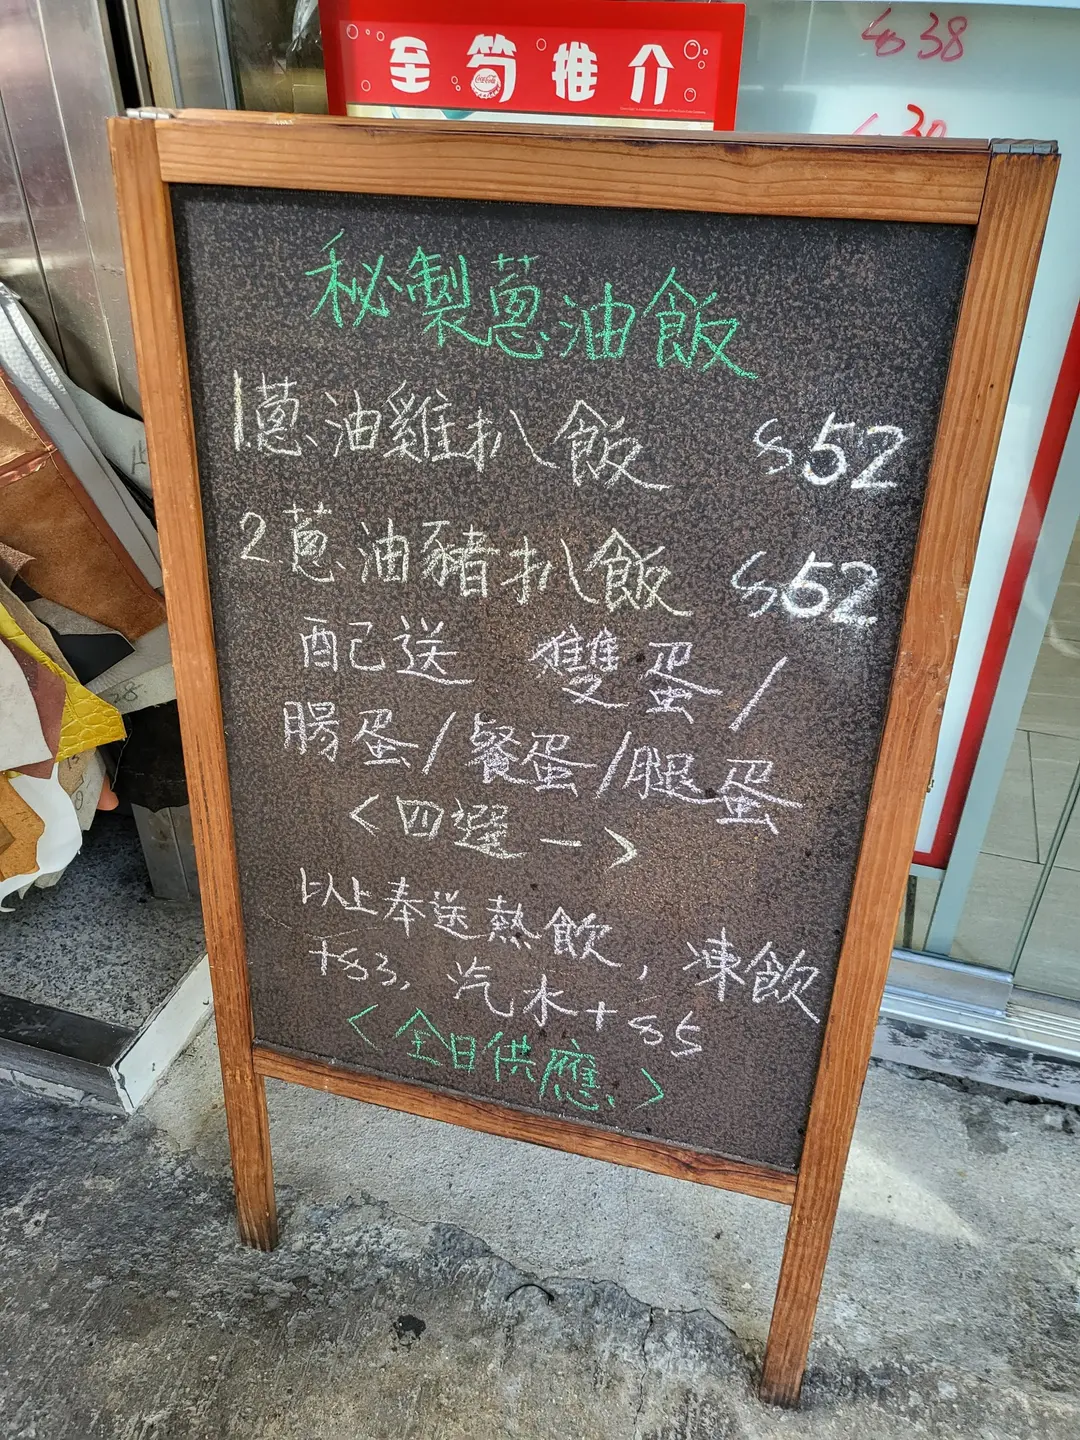 至筍推介
Coca-Cola
$38
$30
秘製蔥油飯
1.蔥油雞扒飯 $52
2.蔥油豬扒飯 $52
配送 雙蛋/
腸蛋/餐蛋/腿蛋
<四選一>
以上奉送熱飲,凍飲
+$3,汽水+$5
<全日供應>